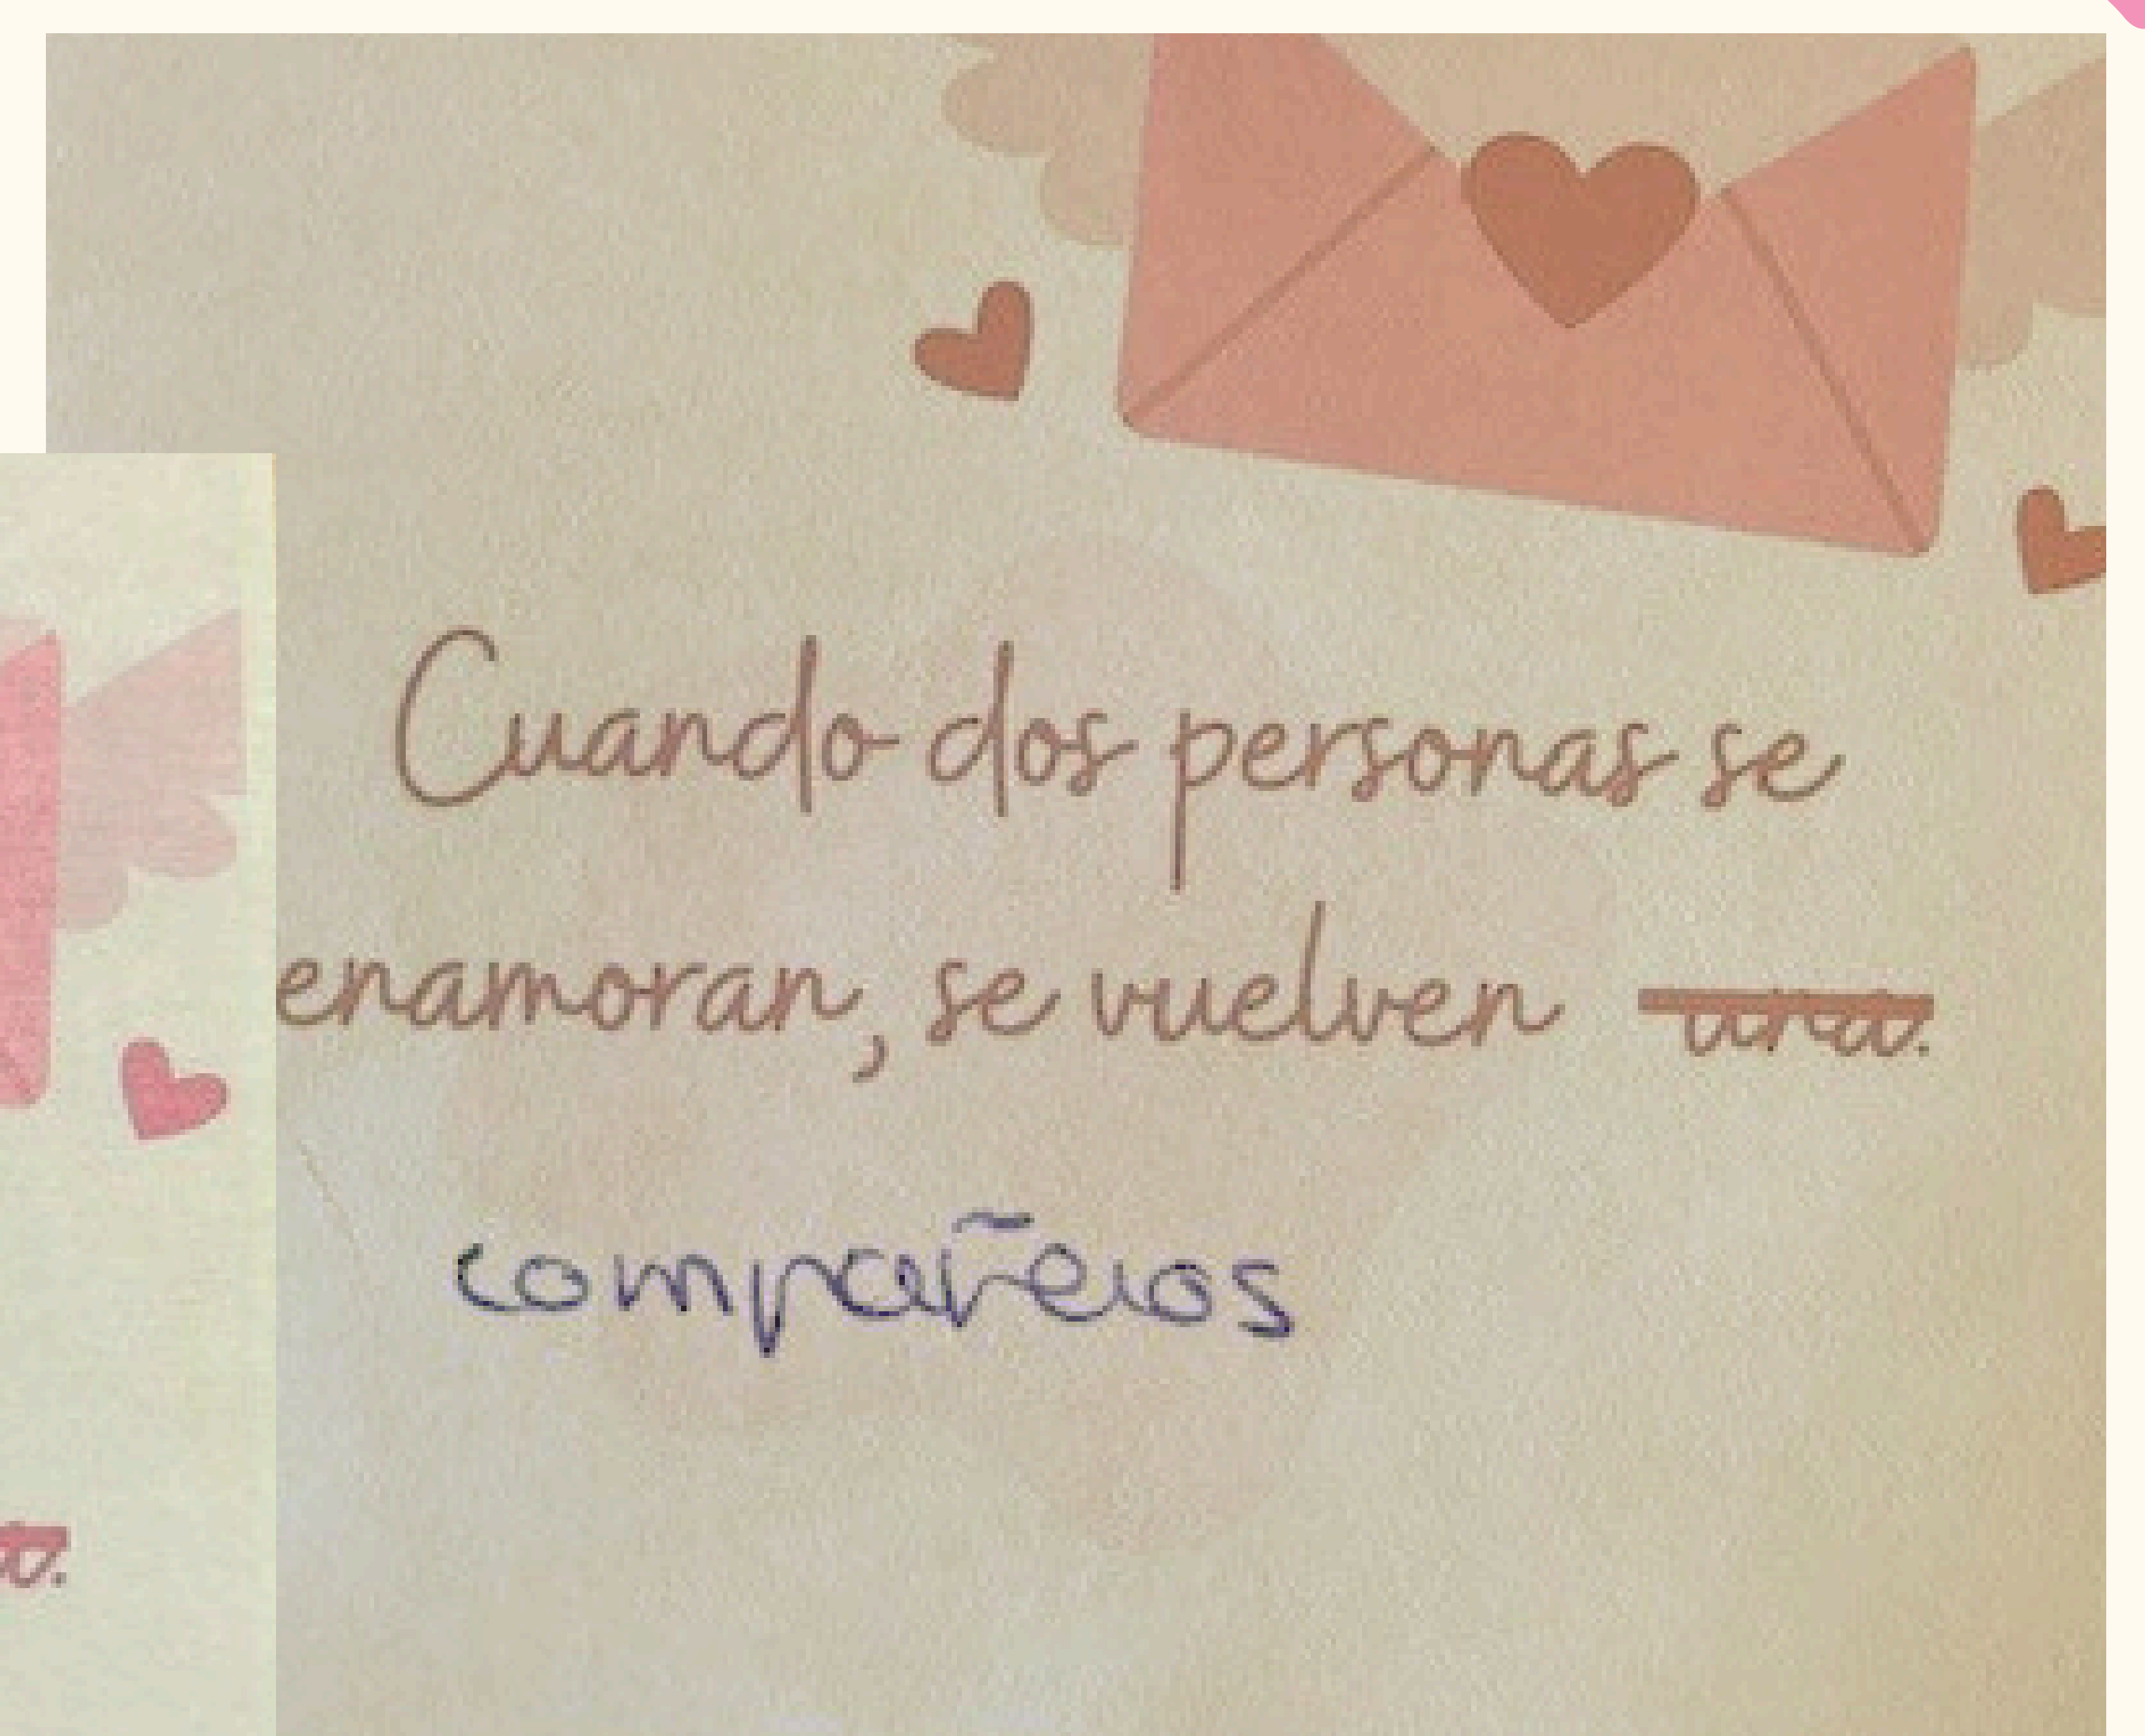 Cuando dos personas se
enamoran, se vuelven una.
compañeros